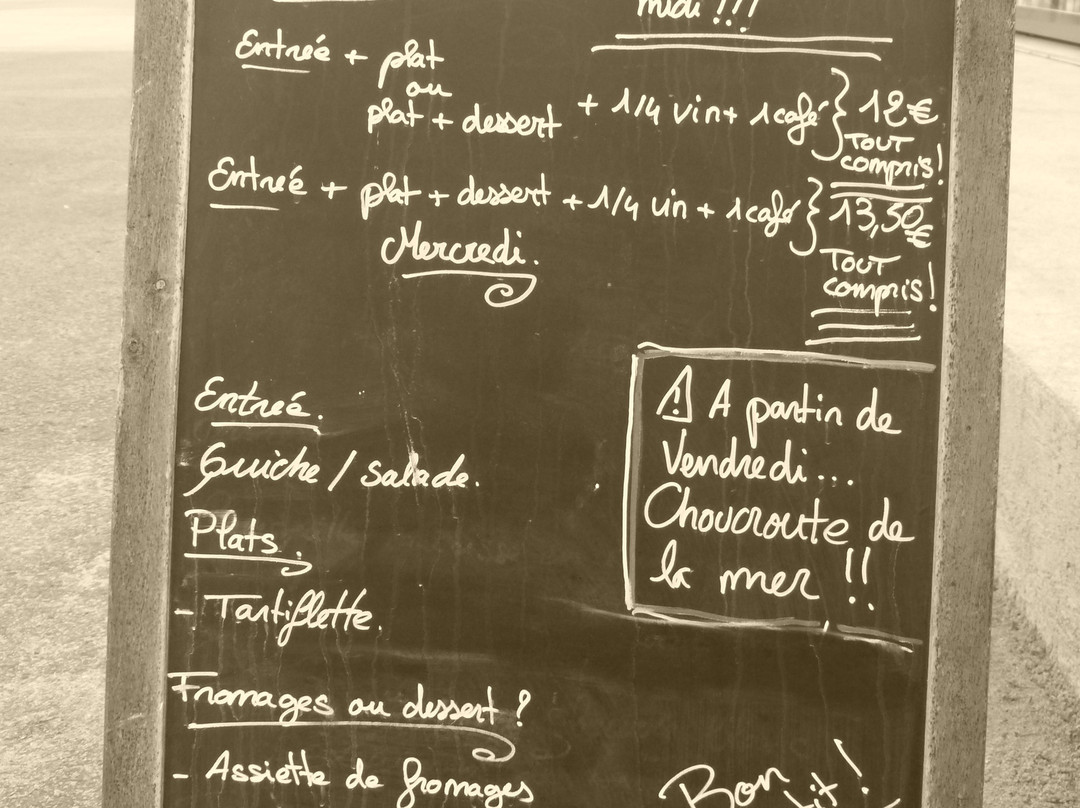 midi !!!
Entrée + plat
ou
plat + dessert + 1/4 vin + 1 café } 12€
TOUT
compris !
Entrée + plat + dessert + 1/4 vin + 1 café } 13,50€
Mercredi.
TOUT
compris !
Entrée.
Quiche / salade.
Plats.
- Tartiflette.
⚠ A partir de
Vendredi...
Choucroute de
la mer !!
Fromages ou dessert ?
- Assiette de fromages
Bon